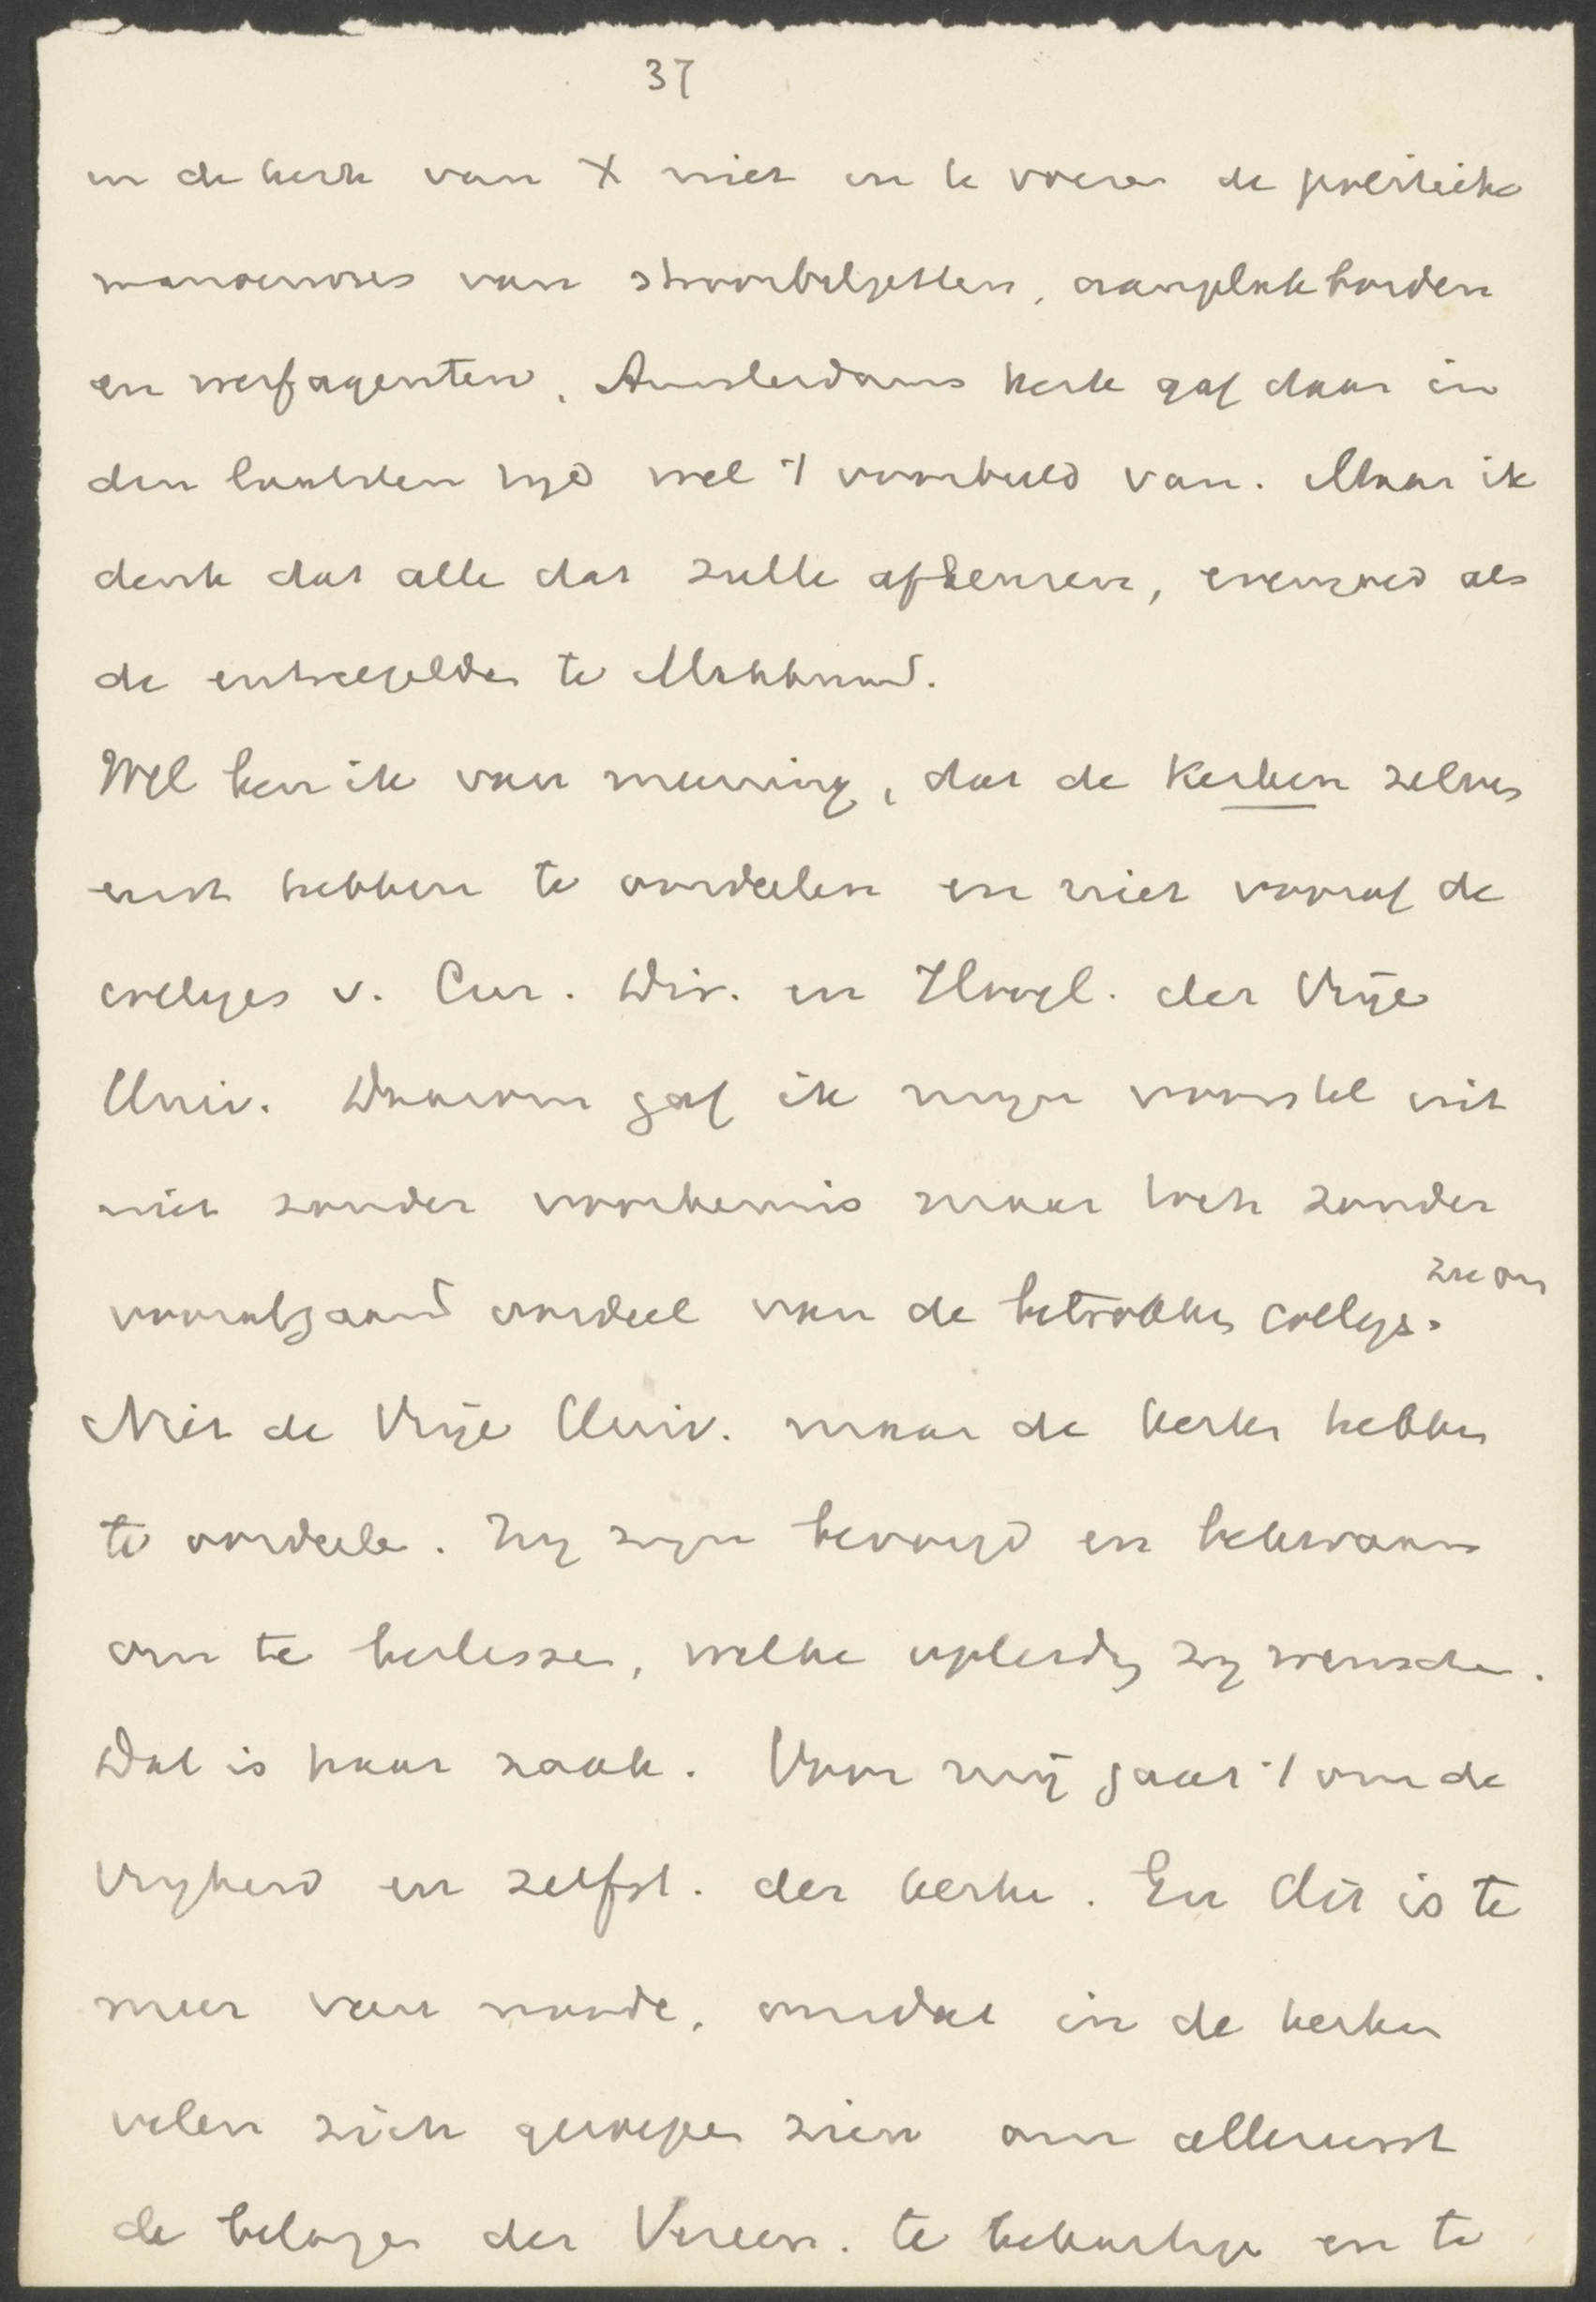 37
in de kerk van X niet in te voeren de politieke
manoeuvres van strooibiljetten, aanplakborden
en werfagenten. Amsterdams kerk gaf daar in
den laatsten tijd wel 't voorbeeld van. Maar ik
denk dat alle dat zulle afkeuren, evengoed als
de entreegelden te
Wel ben ik van meening, dat de Kerken zelve
eerst hebben te oordeelen en niet vooraf de
colleges v. Cur. Dir. en Hoogl. der Vrije
Univ. Daarom gaf ik mijn voorstel uit
niet zonder voorkennis maar toch zonder
voorafgaand oordeel van de betrokken colleges.
Niet de Vrije Univ. maar de kerken hebben
te oordeele. Zij zijn bevoegd en bekwaam
om te beslissen, welke opleidg zij wenschen.
Dat is haar zaak. Voor mij gaat 't om de
Vrijheid en zelfst. der kerken. En dit is te
meer van noode, omdat in de kerken
velen zich geroepen zien om allereerst
de belangen der Vereen. te behartigen en te